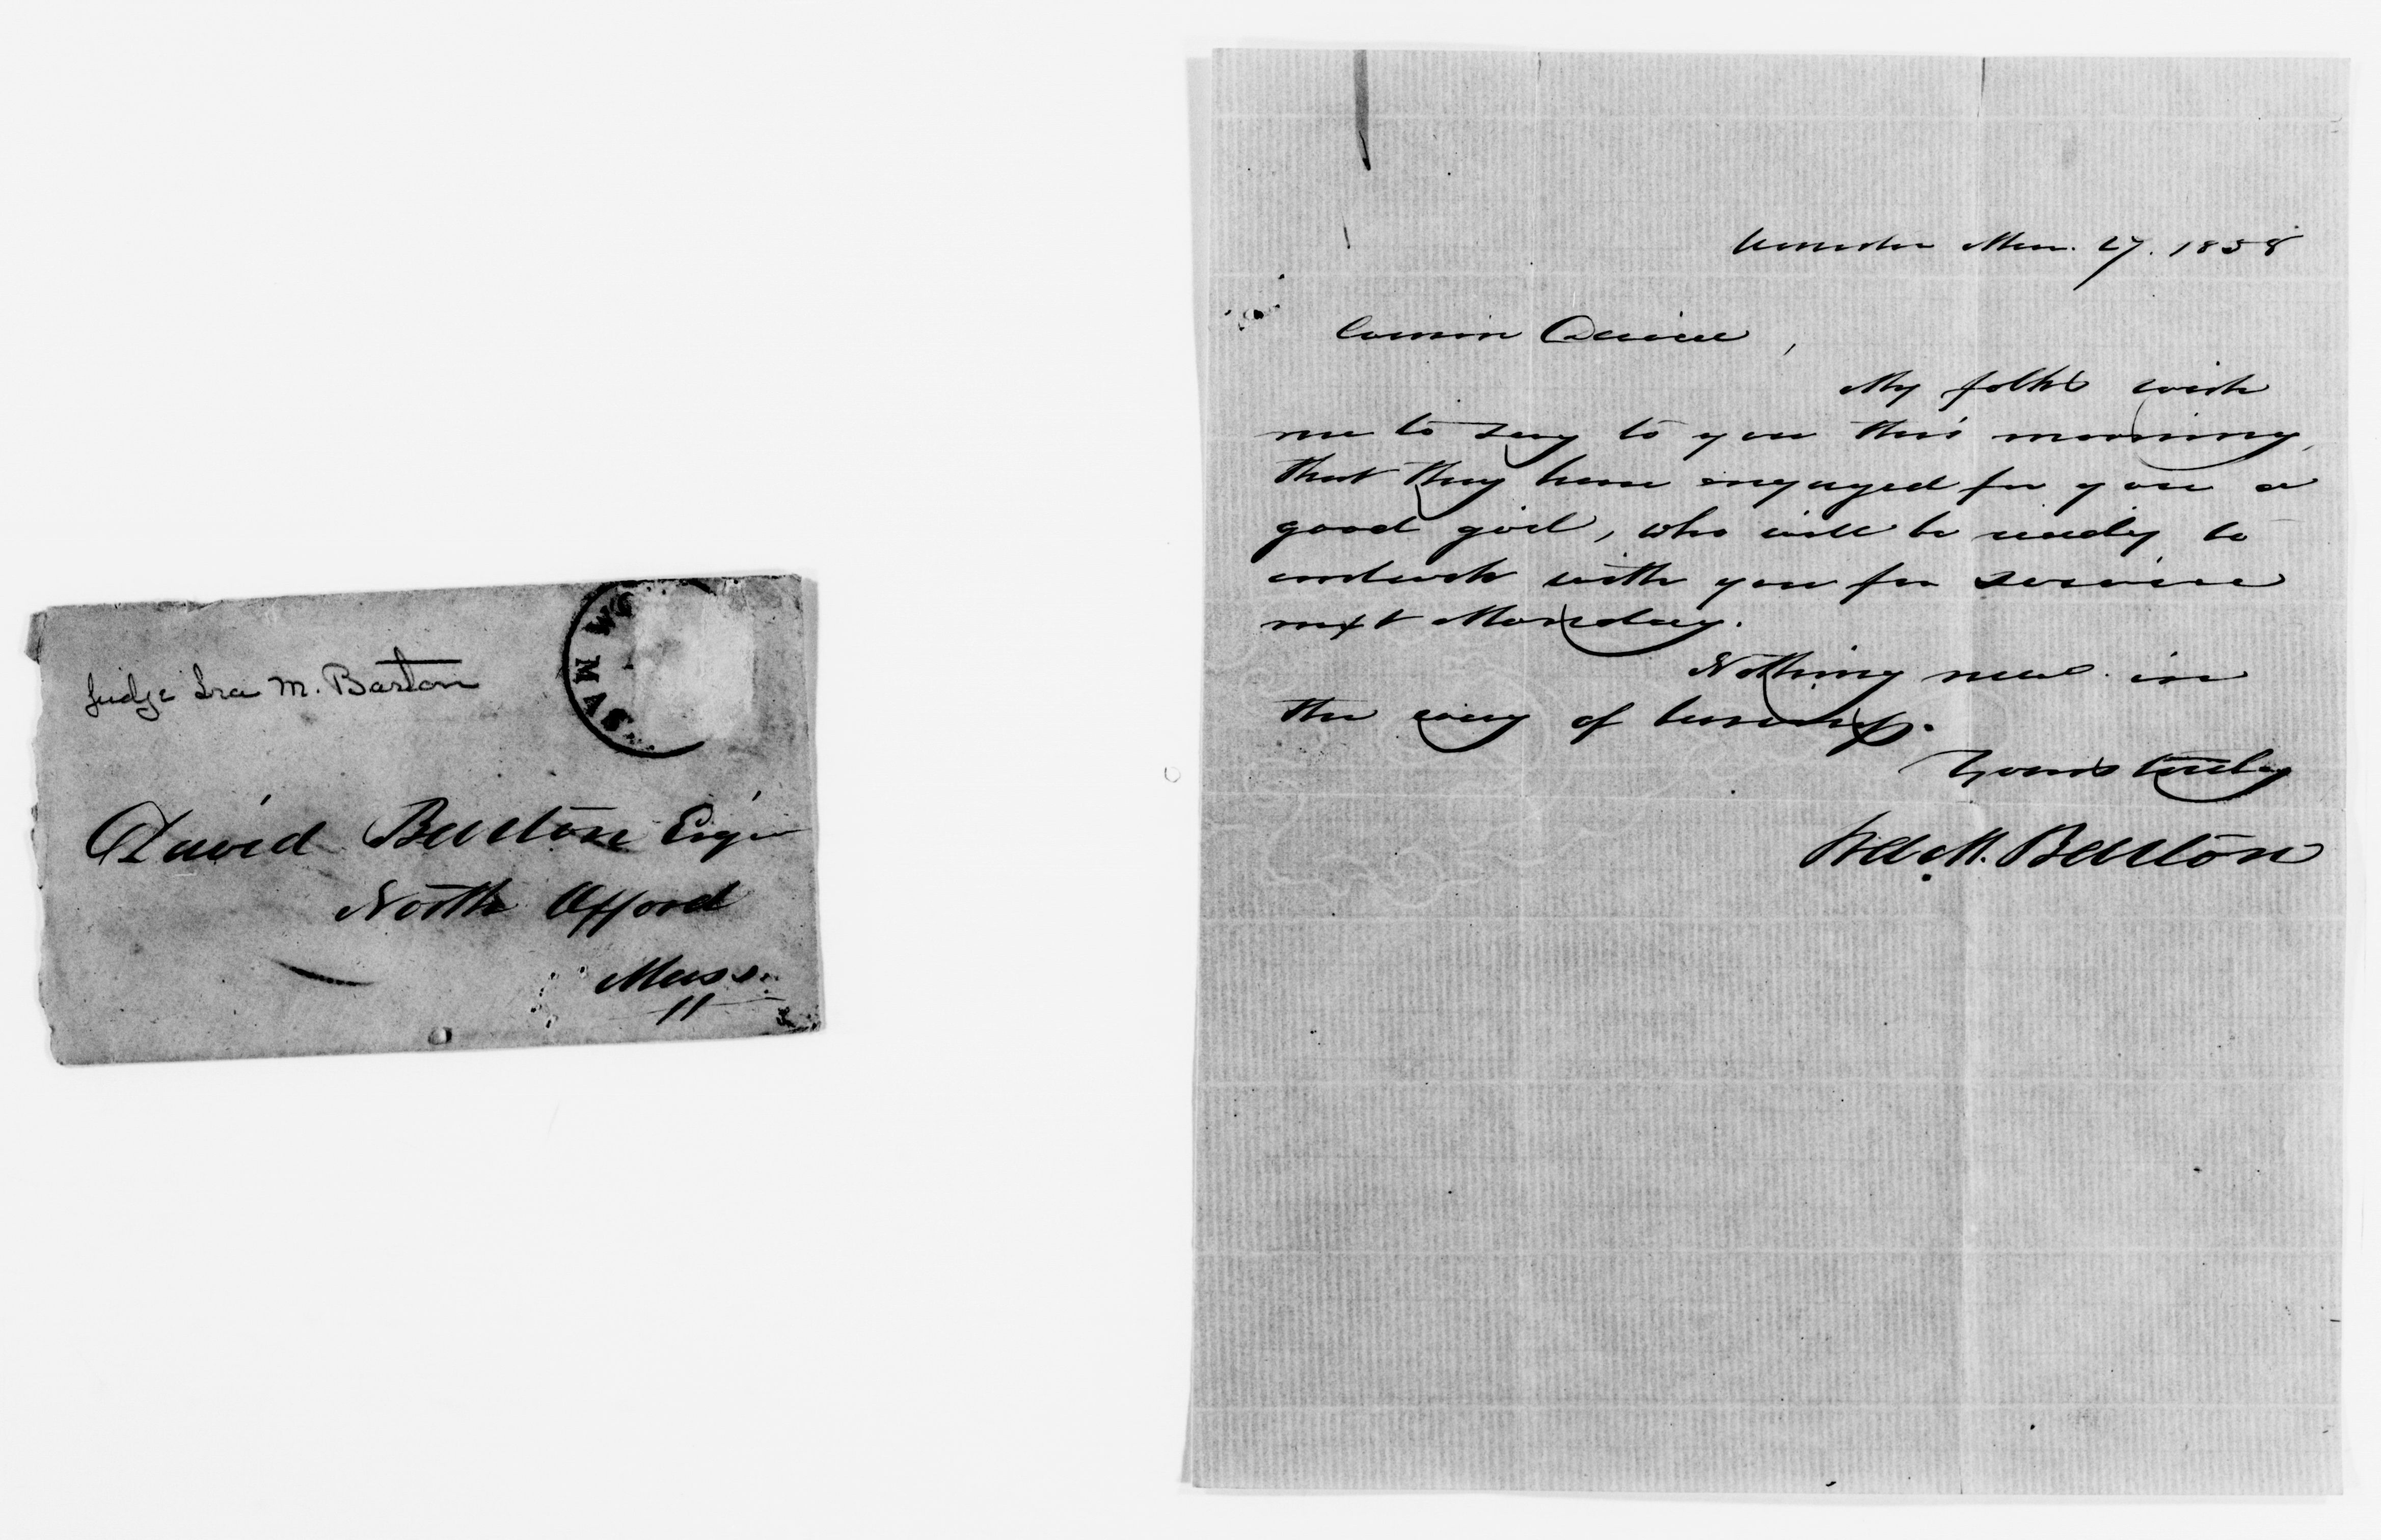 Judge Ira M. Barton
WO
MAS
David Barton Esqr
North Oxford
Mass.
Worcester Mar. 27. 1858
Cousin David,
My folks wish
me to say to you this morning,
that they have engaged for you a
good girl, who will be ready to
embark with you for service
next Monday.
Nothing new in
the way of business.
Yours truly
Ira M. Barton